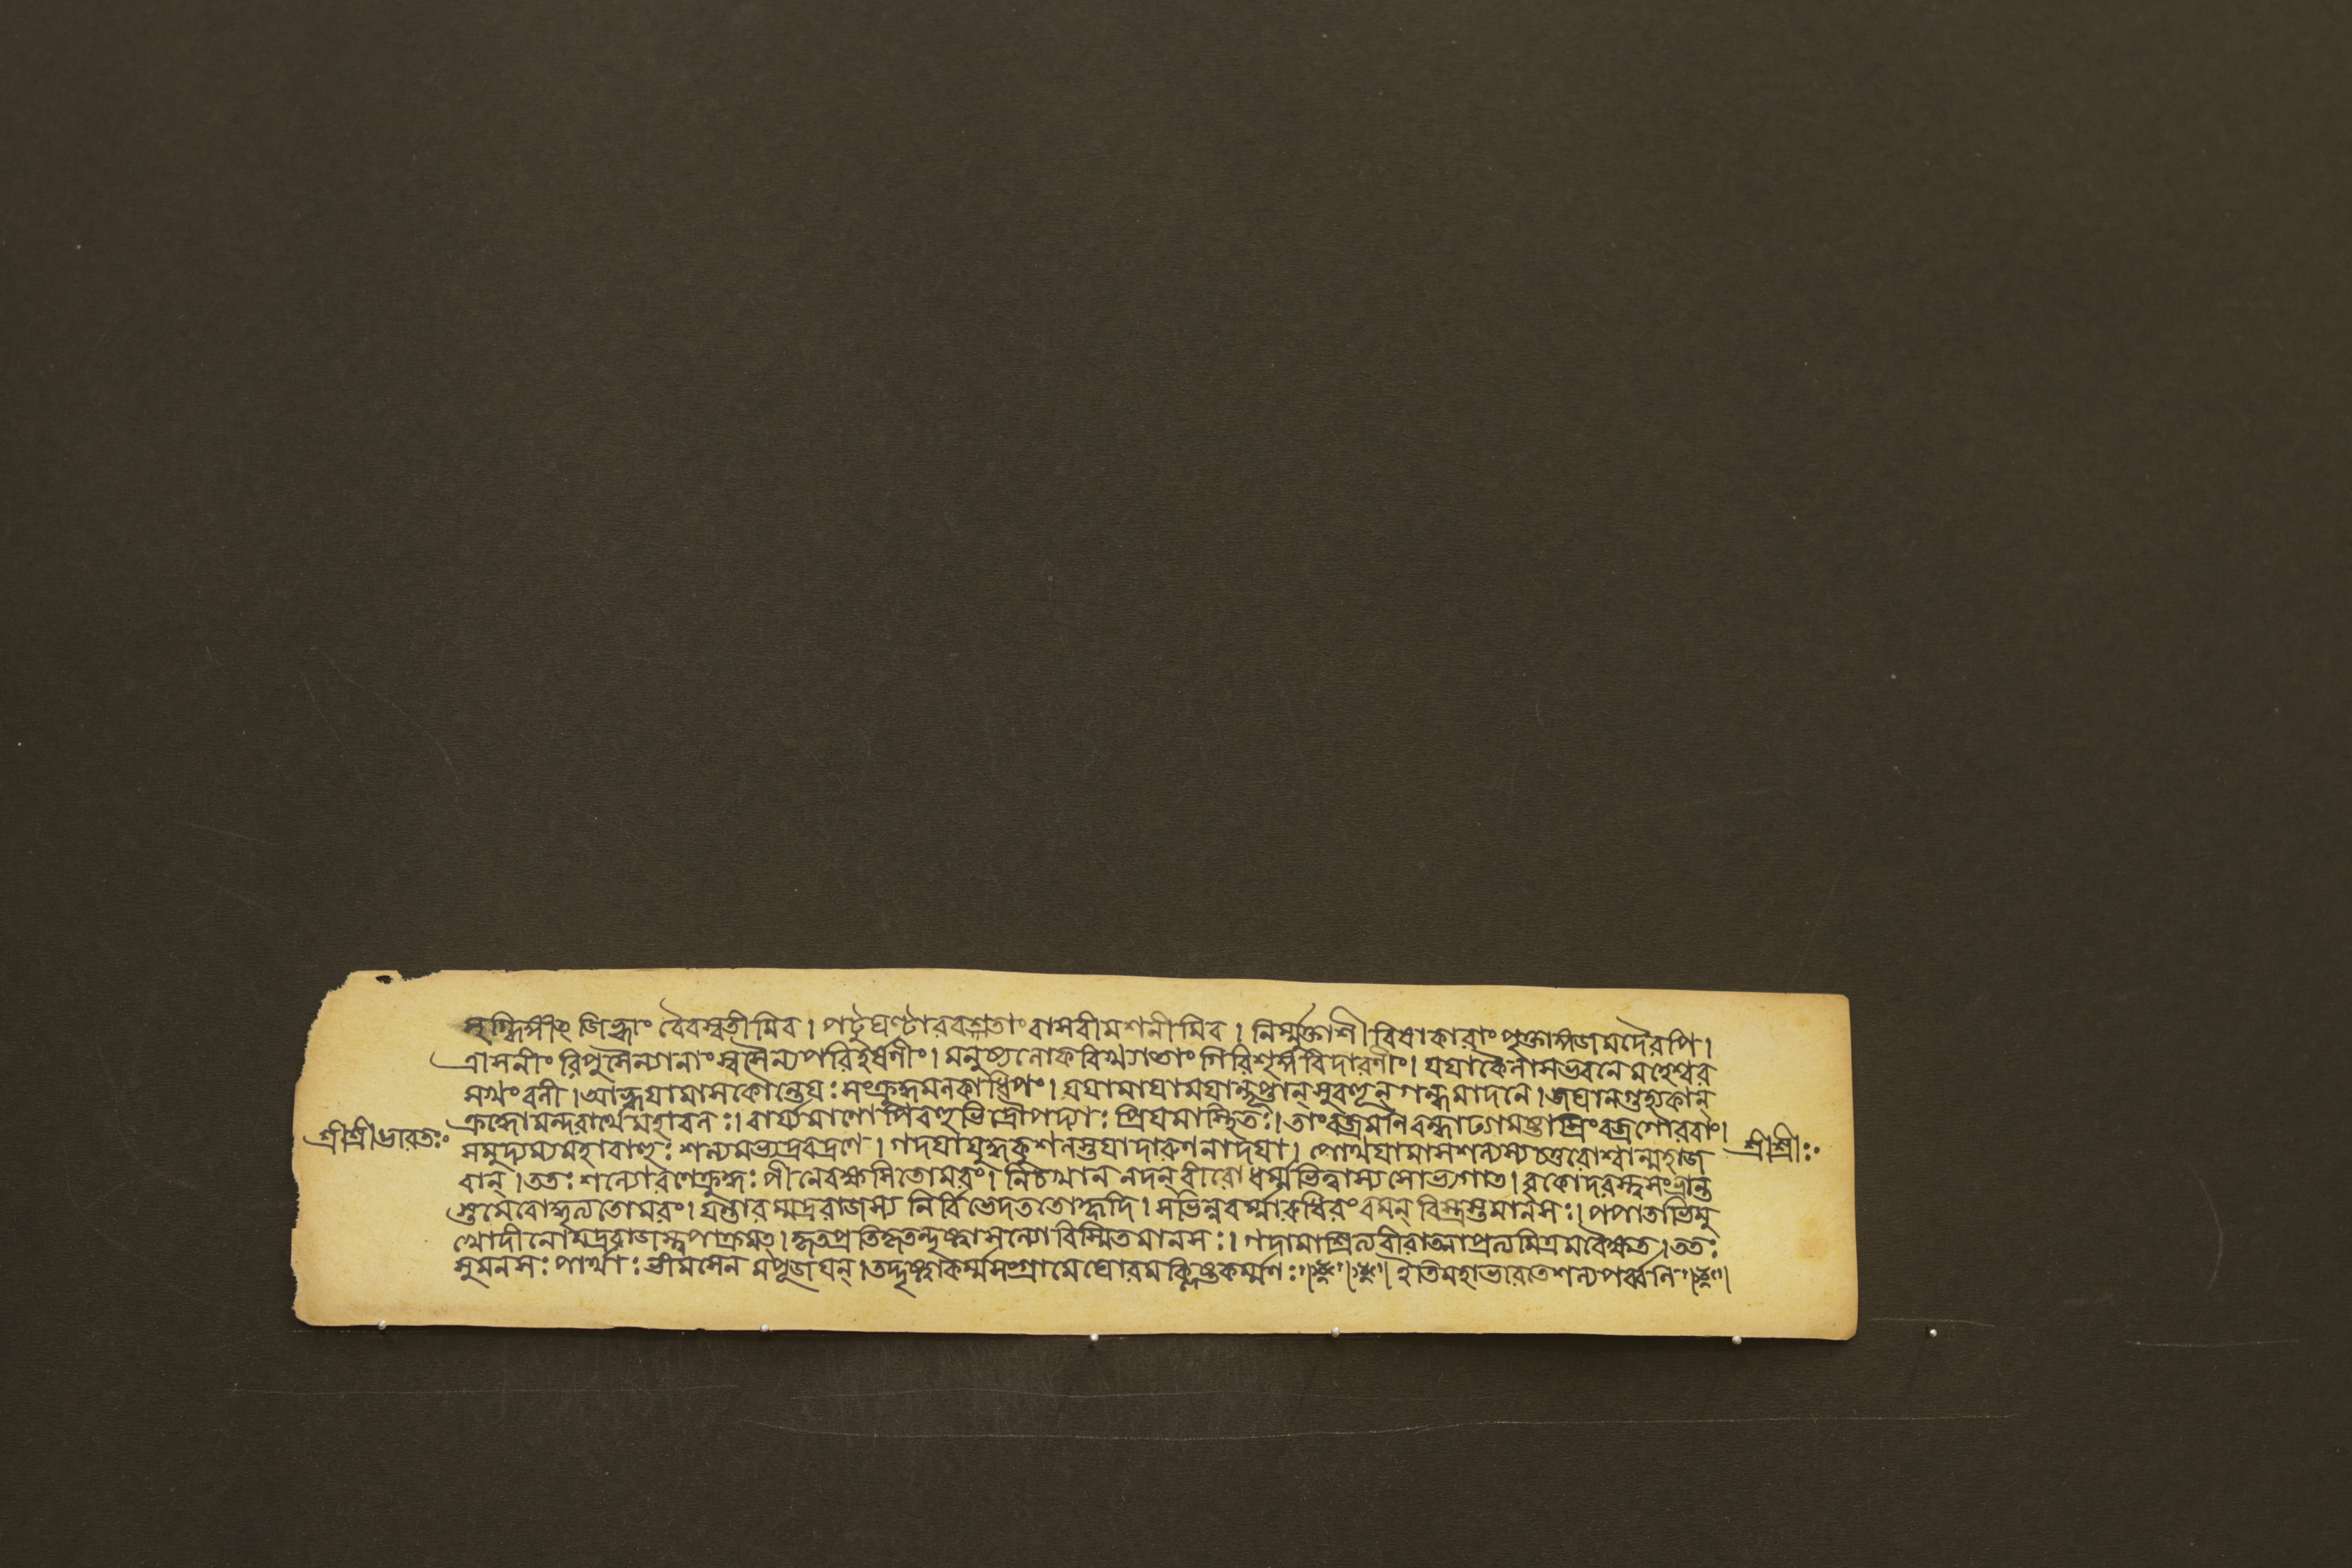 সৃগ্দ্বিগ্মীং জিহ্বাং বৈবস্বতীমিব। পটুঘণ্টারবশতাং বাসবীমশনীমিব। নির্ম্মুক্তাশীবিষাকারাং পৃক্তাঙ্গজমদৈরপি।
ত্রাসনীং রিপুসৈন্যানাং স্বসৈন্যপরিহর্ষণীং। মনুষ্যলোকবিখ্যাতাং গিরিশৃঙ্গবিদারণীং। যযাকৈলাসভবনে মহেশ্বর
সখং বলী। আহ্বযামাসকৌন্তেযঃ সংক্রুদ্ধমলকাধিপং। যযামাযামযান্দৃপ্তান্ সুবহূন্ গন্ধমাদনে। জঘানগুহ্যকান্
ক্রুদ্ধোমন্দরার্থেমহাবলঃ। বার্য্যমাণোপিবহুভির্দ্রৌপদ্যাঃ প্রিযমাস্থিতঃ। তাংবজ্রমণিবন্ধাঢ্যামষ্টাস্রিংবজ্রগৌরবাং।
শ্রীশ্রীভারতঃ সমুদ্যম্যমহাবাহুঃ শল্যমভ্যদ্রবদ্রণে। গদযাযুদ্ধকুশলস্তযাদারুণনাদযা। পোথযামাসশল্যস্যচতুরোশ্বান্মহাজ শ্রীশ্রীঃ
বান্। ততঃ শল্যোরণেক্রুদ্ধঃ পীনেবক্ষসিতোমরং। নিচখান নদন্ বীরো ধর্ম্মভিত্ত্বাস্যসোভ্যগাত্। বৃকোদরস্ত্বসংভ্রান্ত
স্তমেবোদ্ধৃত্যতোমরং। যন্তারম্মদ্ররাজস্য নির্বিভেদততোহৃদি। সভিন্নবর্ম্মারুধিরং বমন্ বিত্রস্তমানসঃ। পপাতাভিমু
খোদীনোমদ্ররাজস্ত্বপাক্রমত্। কৃতপ্রতিকৃতন্দৃষ্ট্বাসল্যোবিস্মিতমানসঃ। গদামাশ্রিত্যবীরাত্মাপ্রত্যমিত্রমবৈক্ষত। ততঃ
সুমনসঃ পার্থাঃ ভীমসেনমপূজযন্। তদ্দৃষ্ট্বাকর্ম্মসংগ্রামেঘোরমক্লিষ্টকর্ম্মণঃ॥ ইতিমহাভারতেশল্যপর্ব্বনি॥